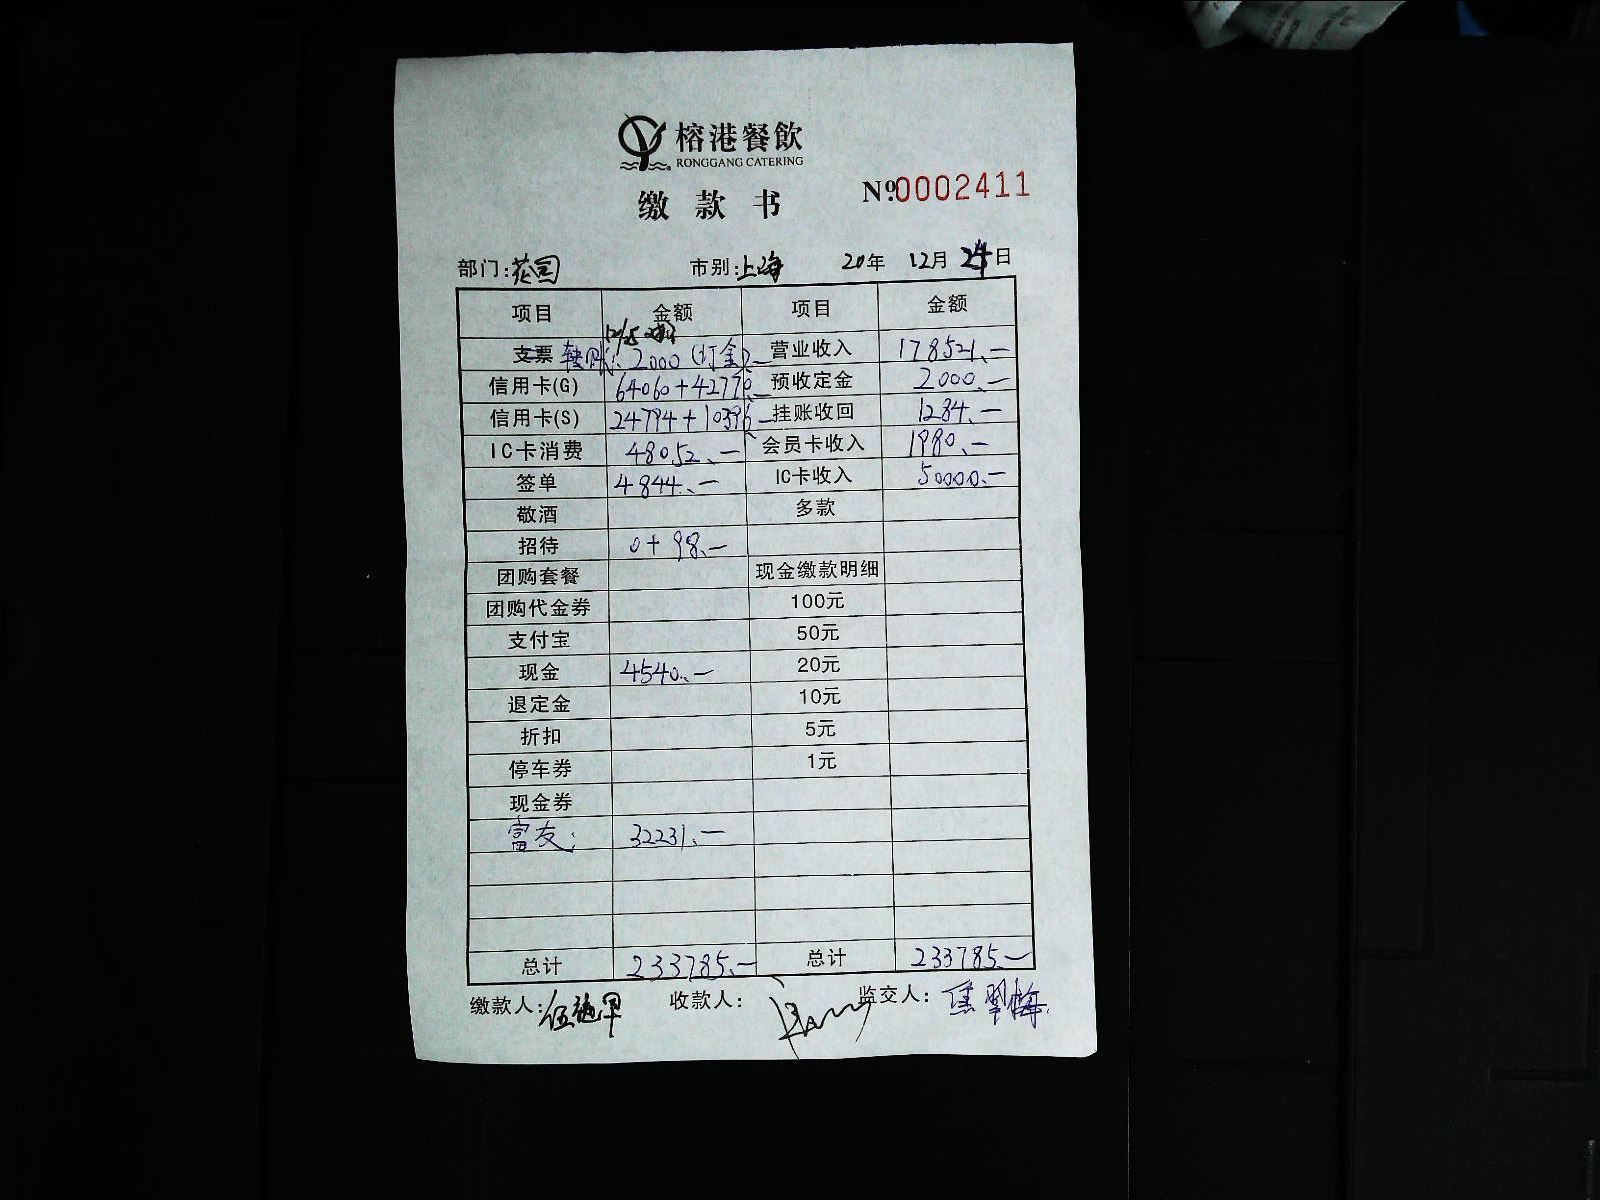 榕港餐飲
RONGGANG CATERING
缴款书
№0002411
部门:花园 市别:上海 20年 12月 24日
项目 金额 项目 金额
12/25
支票 转账: 2000(订金)、一 营业收入 178521、一
信用卡(G) 64060+42770、一 预收定金 2000、一
信用卡(S) 24794+10396、一 挂账收回 1284、一
IC卡消费 48052、一 会员卡收入 1980、一
签单 4844、一 IC卡收入 50000、一
敬酒 多款
招待 0+98、一
团购套餐 现金缴款明细
团购代金券 100元
支付宝 50元
现金 4540、一 20元
退定金 10元
折扣 5元
停车券 1元
现金券
富友: 32231、一
总计 233785、一 总计 233785、一
缴款人: 收款人: 监交人: